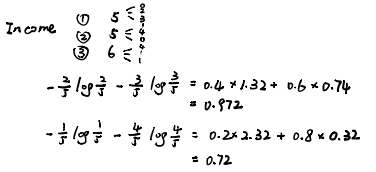 Income ① 5
② 5
③ 6
-2/5 log 2/5 - 3/5 log 3/5 = 0.4 × 1.32 + 0.6 × 0.74
= 0.972
-1/5 log 1/5 - 4/5 log 4/5 = 0.2 × 2.32 + 0.8 × 0.32
= 0.72